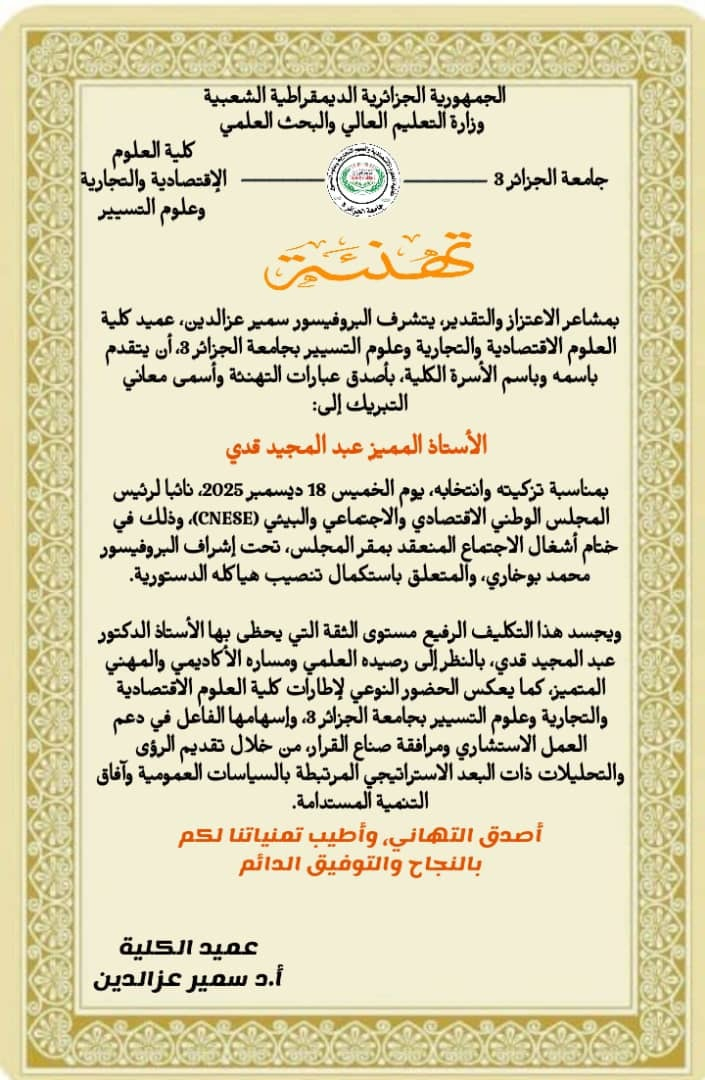 الجمهورية الجزائرية الديمقراطية الشعبية
وزارة التعليم العالي والبحث العلمي
جامعة الجزائر 3
كلية العلوم
الإقتصادية والتجارية
وعلوم التسيير
جامعة الجزائر 3
تهنئة
بمشاعر الاعتزاز والتقدير، يتشرف البروفيسور سمير عزالدين، عميد كلية
العلوم الاقتصادية والتجارية وعلوم التسيير بجامعة الجزائر 3، أن يتقدم
باسمه وباسم الأسرة الكلية، بأصدق عبارات التهنئة وأسمى معاني
التبريك إلى:
الأستاذ المميز عبد المجيد قدي
بمناسبة تزكيته وانتخابه، يوم الخميس 18 ديسمبر 2025، نائبا لرئيس
المجلس الوطني الاقتصادي والاجتماعي والبيئي (CNESE)، وذلك في
ختام أشغال الاجتماع المنعقد بمقر المجلس، تحت إشراف البروفيسور
محمد بوخاري، والمتعلق باستكمال تنصيب هياكله الدستورية.
ويجسد هذا التكليف الرفيع مستوى الثقة التي يحظى بها الأستاذ الدكتور
عبد المجيد قدي، بالنظر إلى رصيده العلمي ومساره الأكاديمي والمهني
المتميز، كما يعكس الحضور النوعي لإطارات كلية العلوم الاقتصادية
والتجارية وعلوم التسيير بجامعة الجزائر 3، وإسهامها الفاعل في دعم
العمل الاستشاري ومرافقة صناع القرار، من خلال تقديم الرؤى
والتحليلات ذات البعد الاستراتيجي المرتبطة بالسياسات العمومية وآفاق
التنمية المستدامة.
أصدق التهاني، وأطيب تمنياتنا لكم
بالنجاح والتوفيق الدائم
عميد الكلية
أ.د سمير عزالدين